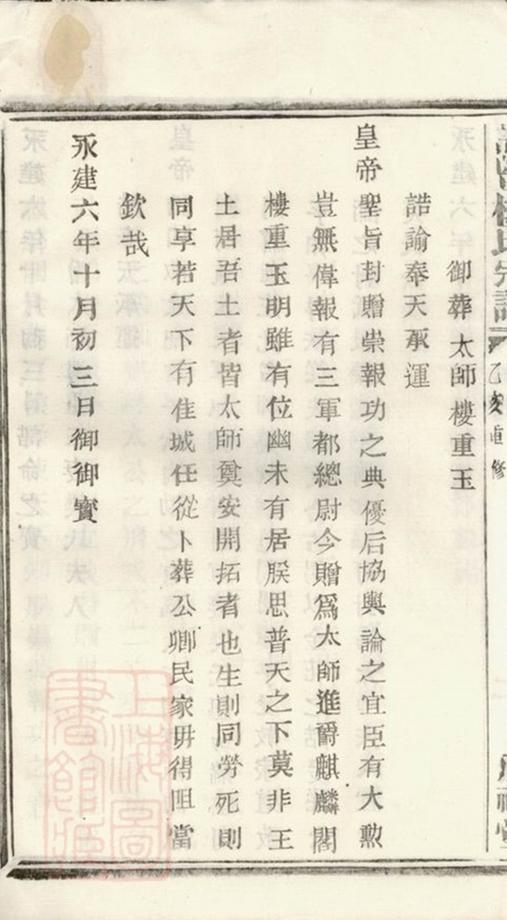 乙亥重修
御葬太師樓重玉
誥諭奉天承運
皇帝聖旨封贈崇報功之典優后協輿論之宜臣有大勲
豈無偉報有三軍都總尉今贈爲太師進爵麒麟閣
樓重玉明雖有位幽未有居朕思普天之下莫非王
土居吾土者皆太師奠安開拓者也生則同勞死則
同享若天下有佳城任從卜葬公卿民家毋得阻當
欽哉
永建六年十月初三日御御寳
上海圖書館藏